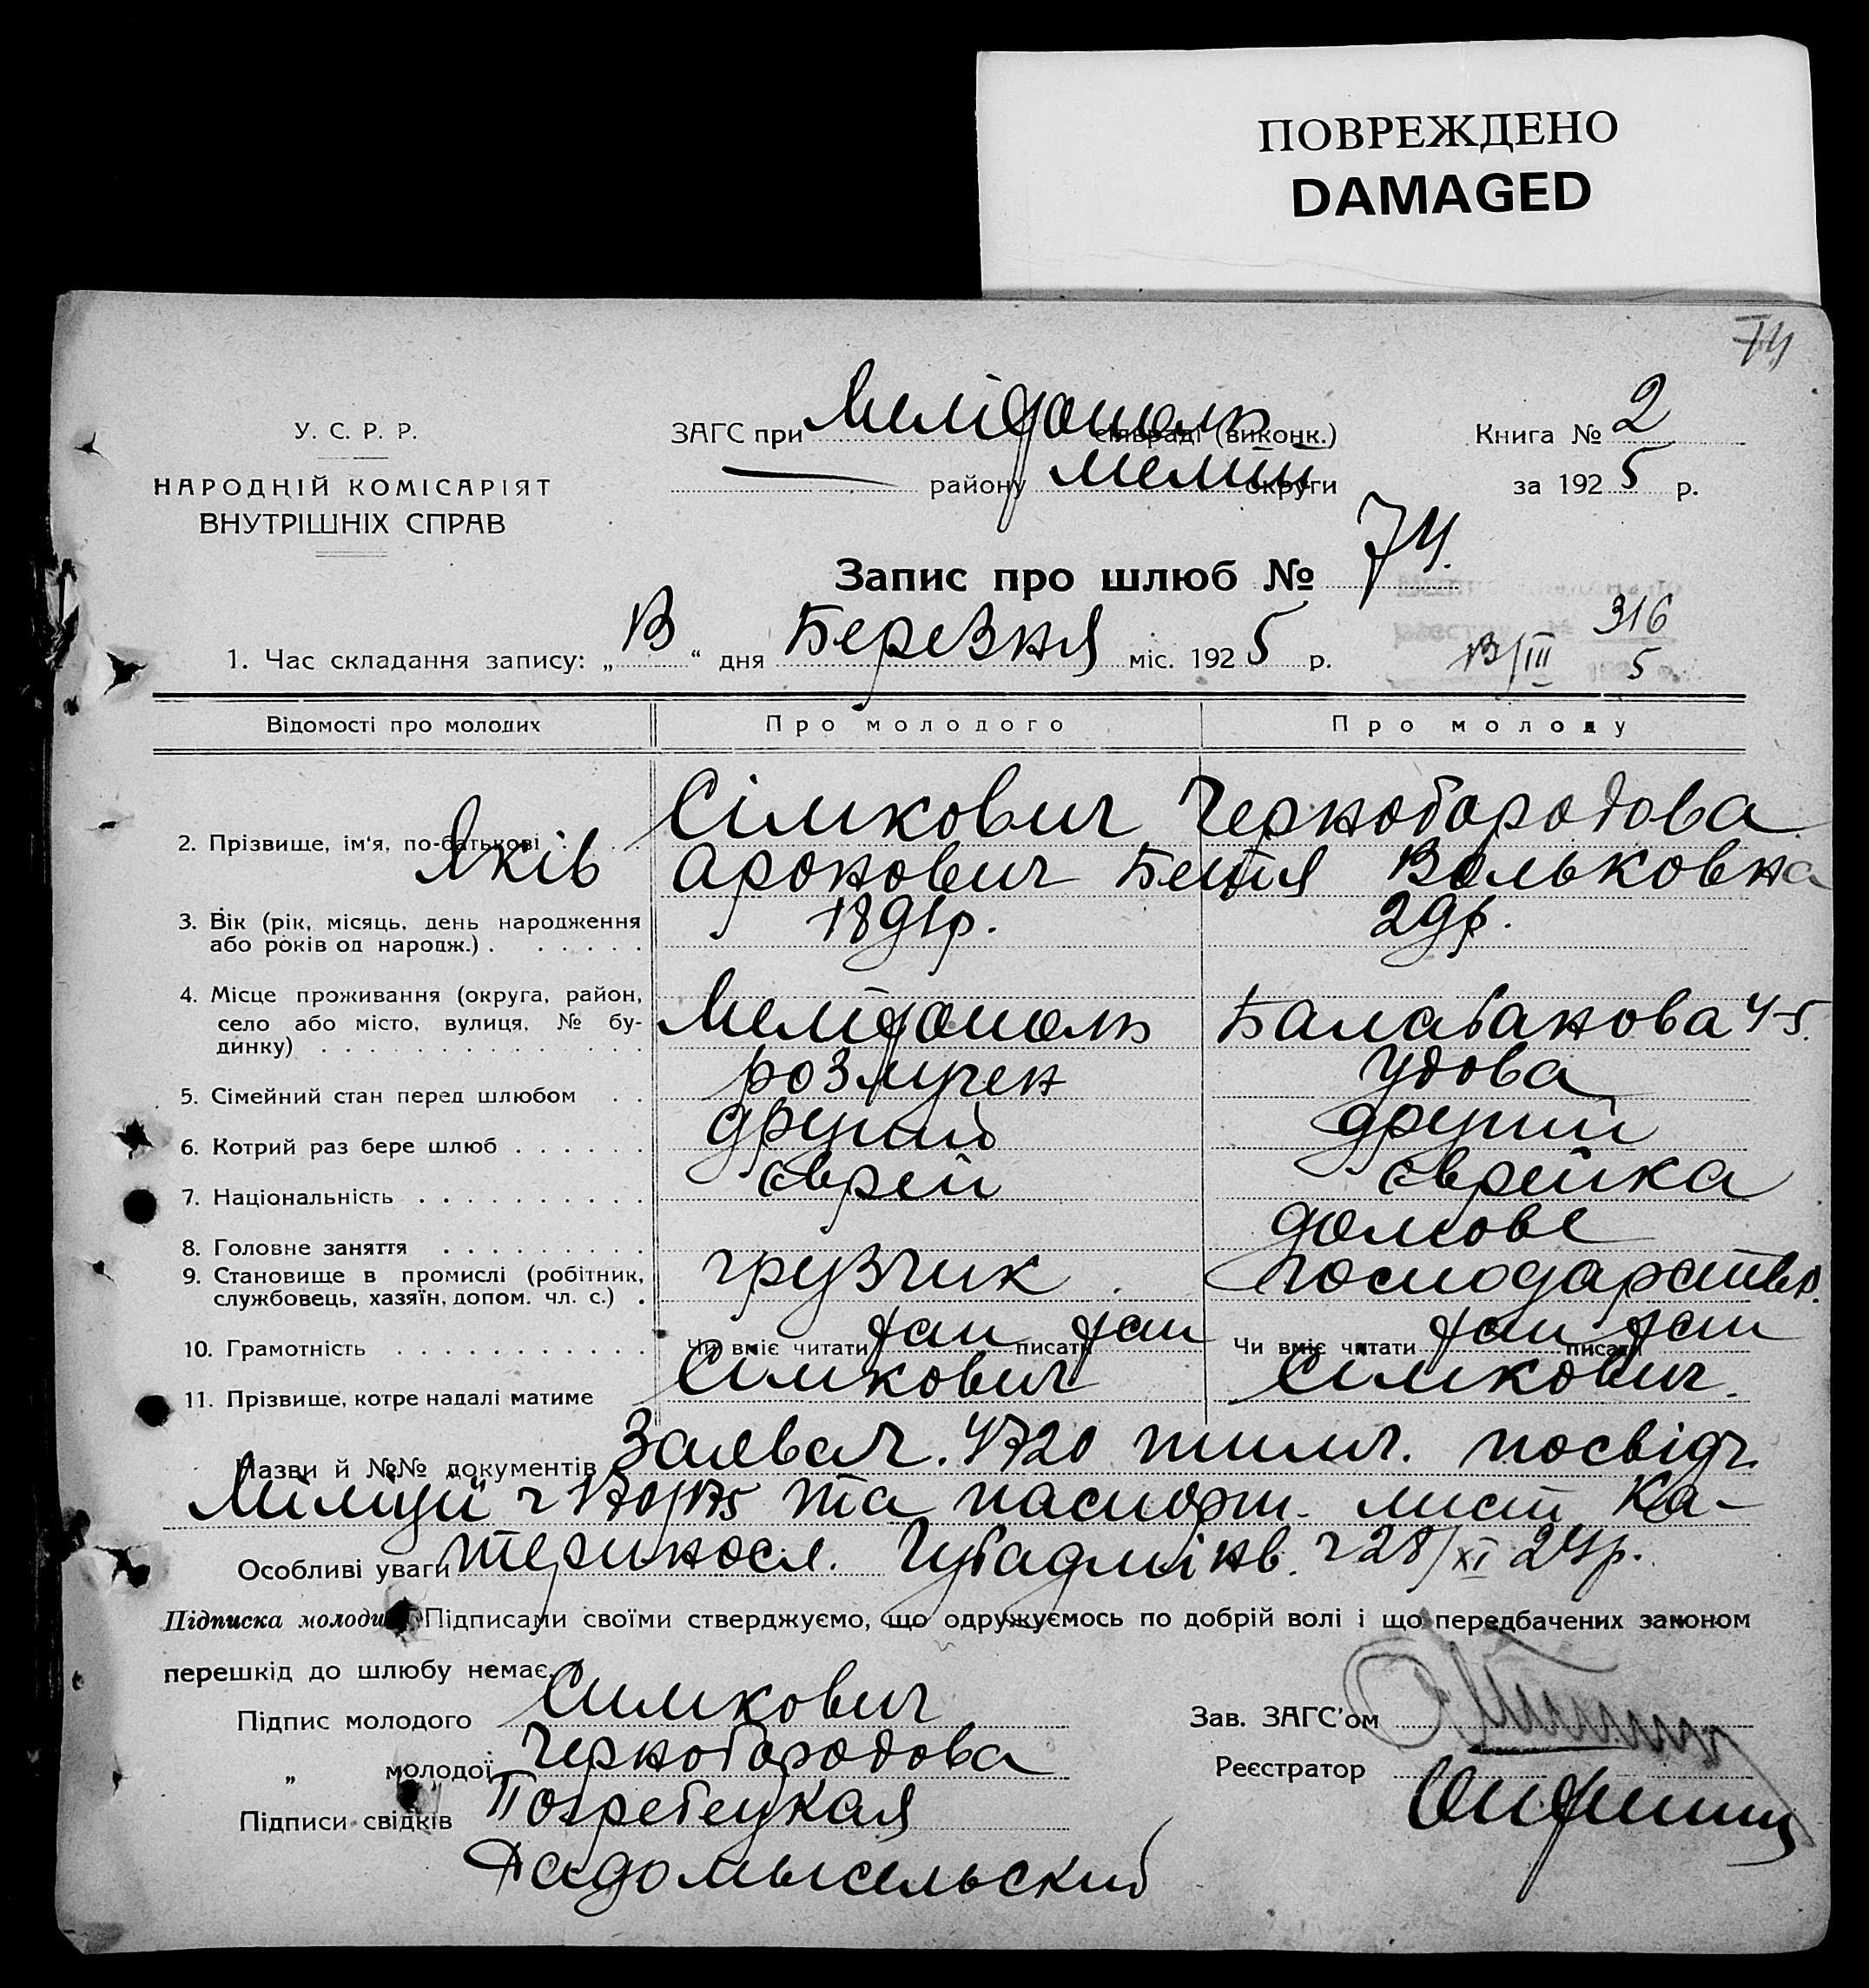 ПОВРЕЖДЕНО
DAMAGED
74
У. С. Р. Р.
НАРОДНІЙ КОМІСАРІЯТ
ВНУТРІШНІХ СПРАВ
ЗАГС при Мелітополь сільраді (виконк.)
— району Меліт округи
Книга № 2
за 1925 р.
Запис про шлюб № 74.
1. Час складання запису: „13“ дня Березня міс. 1925 р.
316
13/III 5
Відомості про молодих Про молодого Про молоду
2. Прізвище, ім'я, по-батькові Сімкович Чернобородова
Яків Аронович Бейля Вольковна
3. Вік (рік, місяць, день народження 1891р. 29р.
або років од народж.)
4. Місце проживання (округа, район,
село або місто, вулиця, № бу- Мелітополь Балабанова 45.
динку)
5. Сімейний стан перед шлюбом розлучен удова
6. Котрий раз бере шлюб другий другий
7. Національність єврей єврейка
8. Головне заняття домове
9. Становище в промислі (робітник, грузчик. господарство.
службовець, хазяїн, допом. чл. с.)
10. Грамотність Чи вміє читати так писати так Чи вміє читати так писати так
11. Прізвище, котре надалі матиме Сімкович Сімкович.
Назви й №№ документів Заява ч. 4720 тимч. посвідч.
Міліції ч 170/175 та паспорт. лист Ка-
Особливі уваги териносл. Губадмінв. ч 28/XI 24р.
Підписка молодих Підписами своїми стверджуємо, що одружуємось по добрій волі і що передбачених законом
перешкід до шлюбу немає.
Підпис молодого Симкович
Зав. ЗАГС'ом
„ молодої Чернобородова
Реєстратор
Підписи свідків Погребецкая
Радомысельский